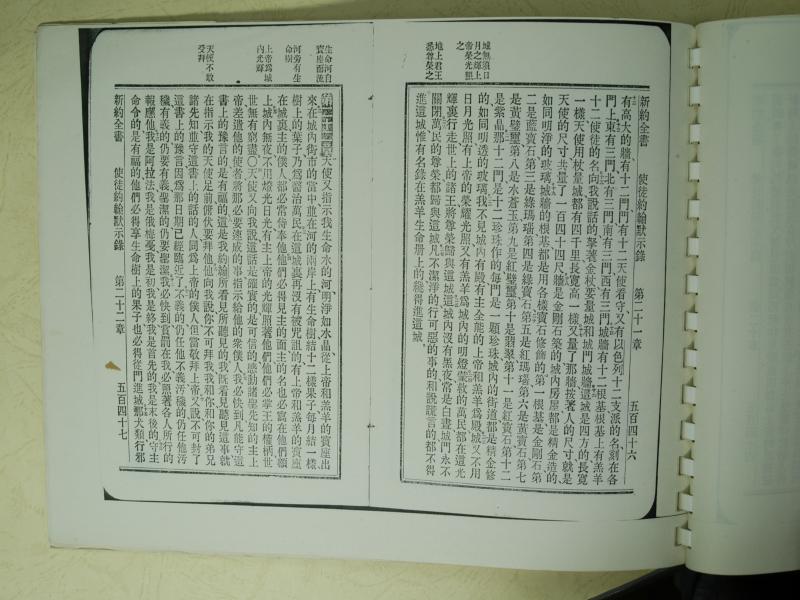 新約全書　使徒約翰默示錄　第二十一章　五百四十六
城無須日
月之光上
帝榮光照
之
地上君王
悉尊榮之
有高大的牆有十二門門有十二天使看守又有以色列十二支派的名刻在各
門上東有三門北有三門南有三門西有三門城牆有十二根基根基上有羔羊
十二使徒的名向我說話的拏著金杖要量城和城門城牆這城是四方的長寬
一樣天使用杖量城都有四千里長寬高一樣又量了那牆按著人的尺寸就是
天使的尺寸共量了一百四十四尺牆是金剛石築的城內房屋都是精金造的
如同明淨的玻璃城牆的根基都是用各樣寶石修飾的第一根基是金剛石第
二是藍寶石第三是綠瑪瑙第四是綠寶石第五是紅瑪瑙第六是黃寶石第七
是黃璧璽第八是水蒼玉第九是紅璧璽第十是翡翠第十一是紅寶石第十二
是紫晶那十二門是十二珍珠作的每門是一顆珍珠城內的街道都是精金修
的如同明透的玻璃我不見城內有殿有主全能的上帝和羔羊爲殿城又不用
日月光照有上帝的榮耀光照又有羔羊爲城內的明燈蒙救的萬民都在這光
輝裏行走世上的諸王將尊榮歸與這城這城內沒有黑夜常是白晝城門永不
關閉萬民的尊榮都歸與這城凡不潔淨的行可惡的事的和說謊言的都不得
進這城惟有名錄在羔羊生命册上的纔得進這城
生命河自
寶座而流
河旁有生
命樹
上帝爲城
內光輝
天使不敢
受拜
第二十二章天使又指示我生命水的河明淨如水晶從上帝和羔羊的寶座出
來在城內街市的當中並在河的兩岸上有生命樹結十二樣果子每月結一樣
樹上的葉子乃爲醫治萬民在這城裏再沒有被咒詛的有上帝和羔羊的寶座
在城裏主的僕人都必常侍奉他他們必得見主的面主的名也必寫在他們額
上城內無夜不用燈光日光有主上帝的光輝照著他們他們必掌王的權柄世
世無有窮盡○天使又向我說這話是確實的是可信的感動諸聖先知的主上
帝差遣他的使者將那必要速成的事指示給他的衆僕人我必快到凡能守這
書上的豫言的是有福的這是我約翰所看見所聽見的我旣看見聽見這事就
在指示我的天使足前俯伏要拜他他向我說你不可拜我我和你和你的弟兄
諸先知並守這書上的話的人同爲上帝的僕人但當敬拜上帝又說不可封了
這書上的豫言因爲那日期已經臨近了不義的仍任他不義汚穢的仍任他汚
穢有義的仍要有義聖潔的仍要聖潔我必快到賞罰在我必照著各人所行的
報應他我是阿拉法我是俄梅戞我是初我是終我是首先的我是末後的守主
命令的是有福的他們必得享生命樹上的果子也必得從門進城那犬類行邪
新約全書　使徒約翰默示錄　第二十二章　五百四十七